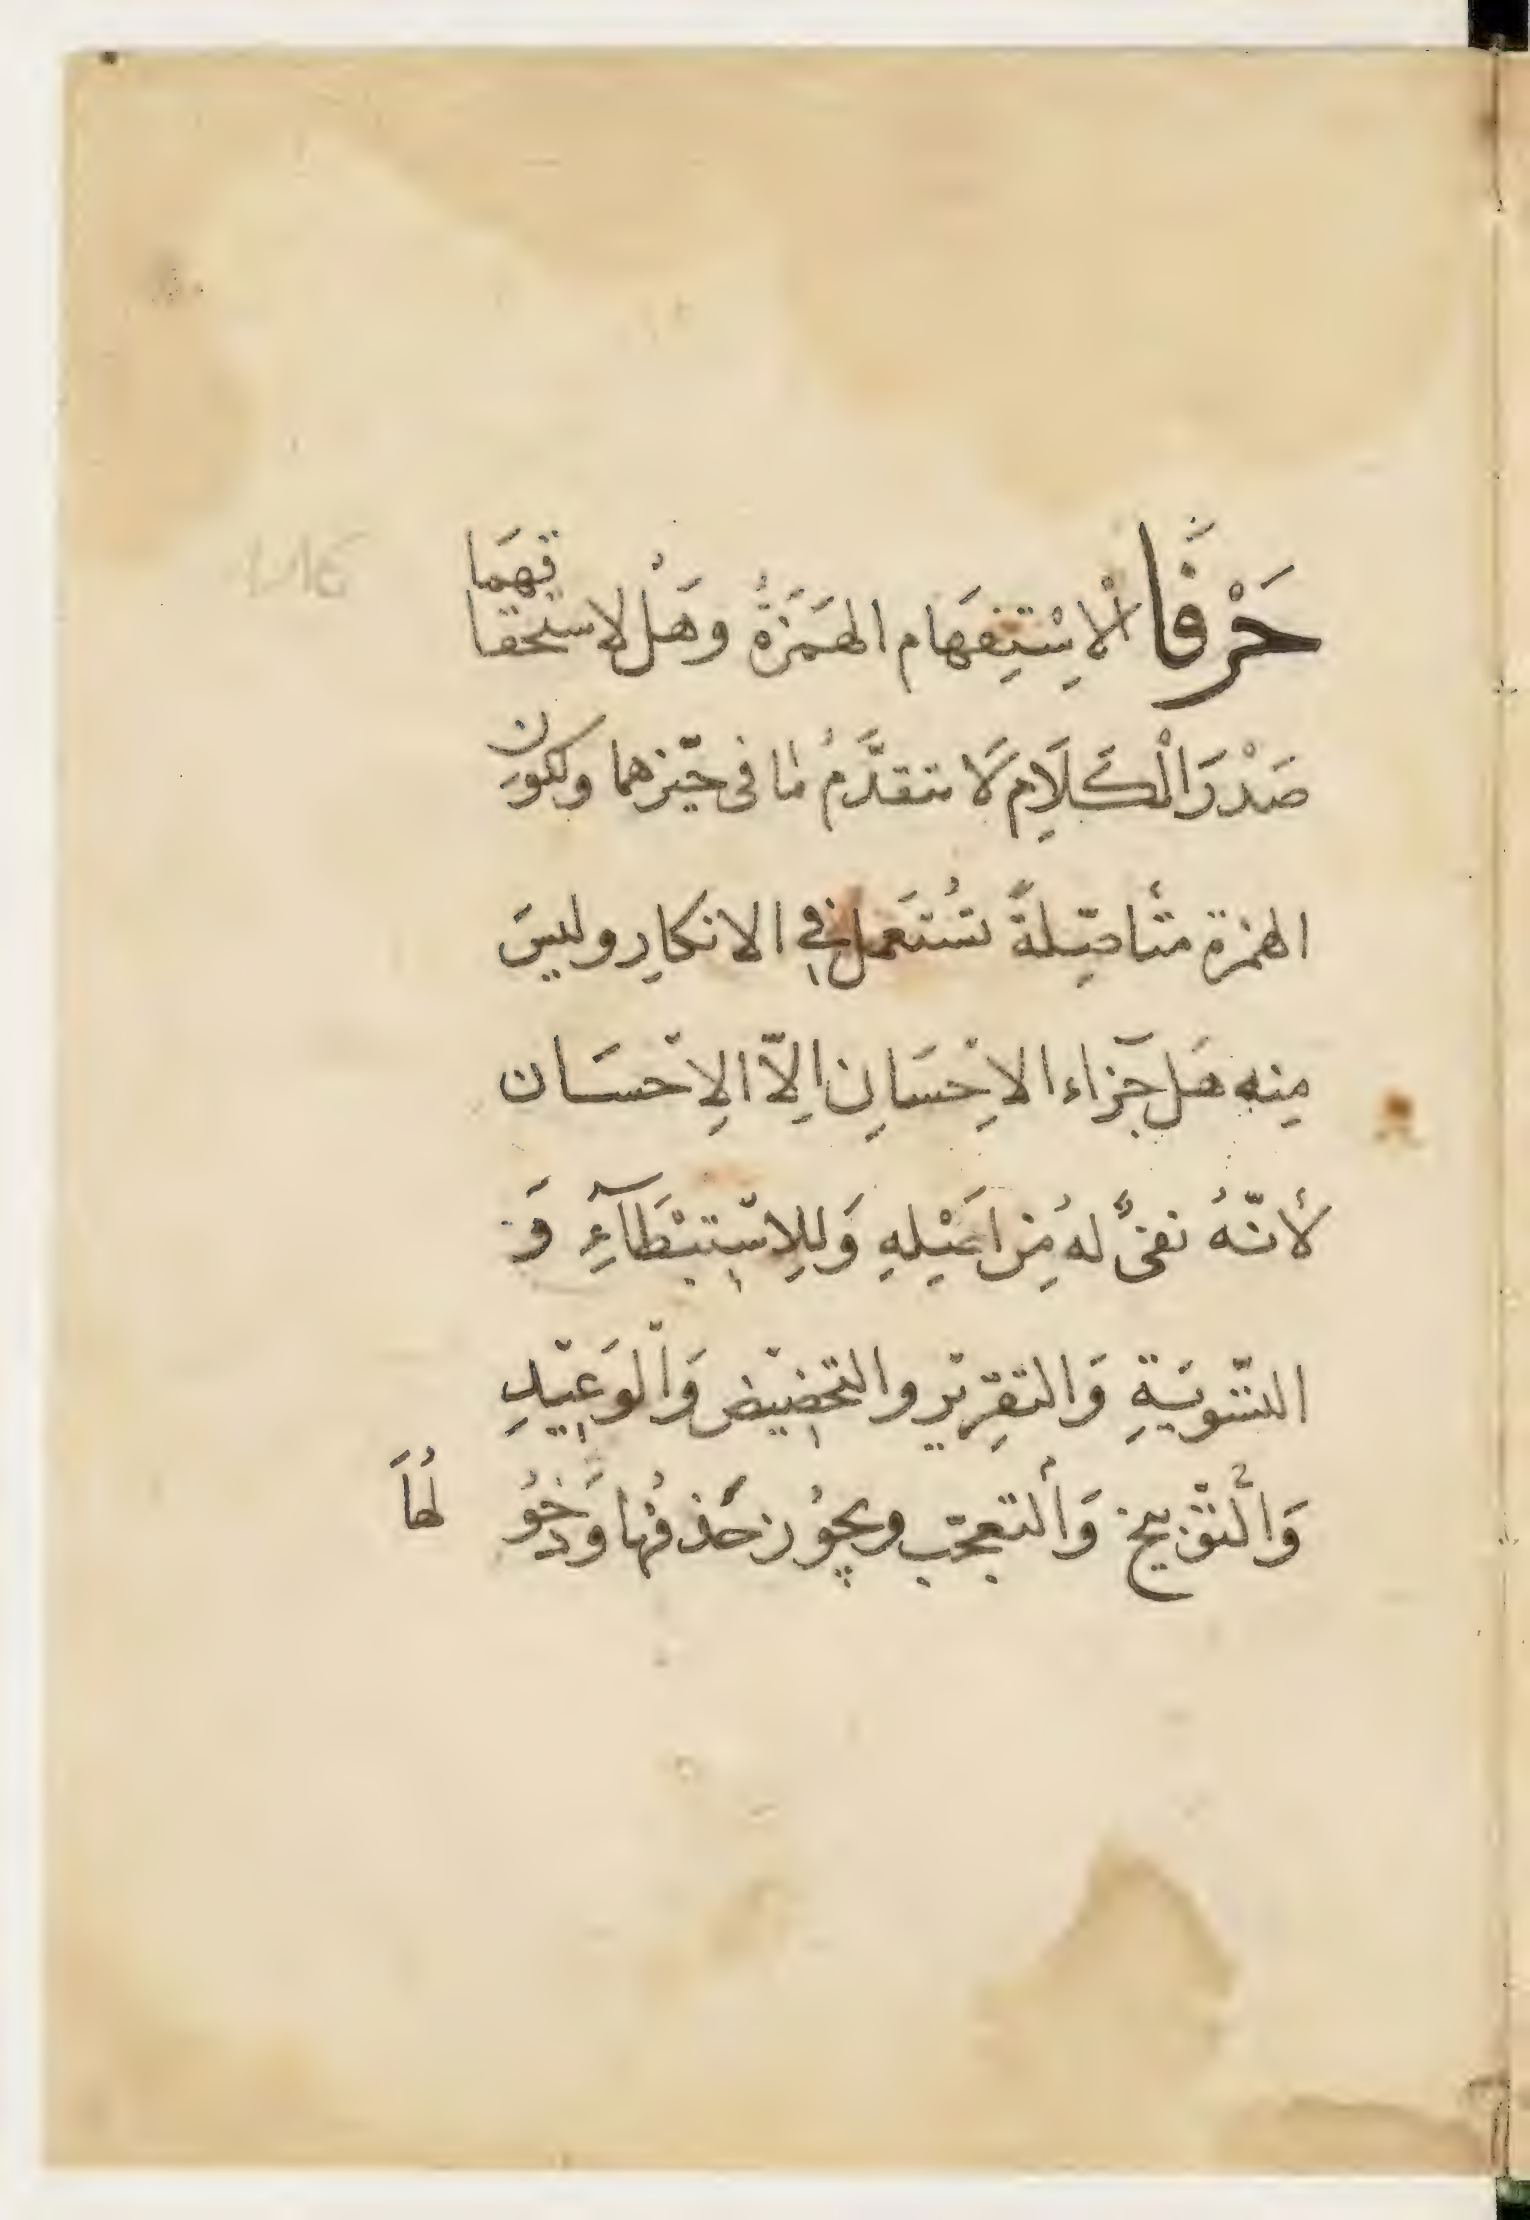 حَرْفَا الْاِسْتِفهَام الهَمَزَةُ وهَلْ لاستحقاقهمَا
صَدْرَ الْكَلَامِ لَا يتقدَّمُ مَا فى حيّزهما ولكون
الهمزة متأصِّلةً تُستَعمل فِي الانكارِ وليسَ
مِنه هَل جَزاء الاِحْسَانِ اِلّا الاِحْسَان
لأنّهُ نفىٌ لهُ مِن اَصْلِهِ وَللاِسْتِبْطَآءِ وَ
التّسْوِيَةِ وَالتقرِيْرِ والتحضِيْض وَالْوَعِيْدِ
وَالْتَوْبِيخ وَالْتعجّب ويجُوز حَذفُها وَدُخُولُهَا